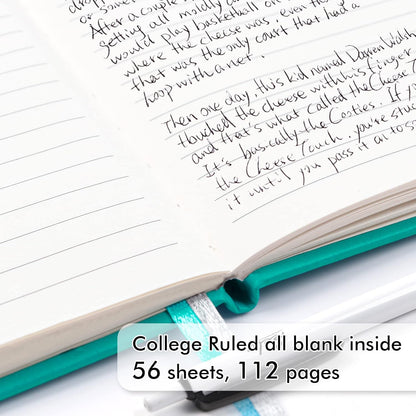 or some
After a couple
getting all moldy a
would play basketball on
where the cheese was, even tho
that was the only court that had a
hoop with a net.
Then one day this kid named Darren Walsh
touched the cheese with his finger,
and that's what called the Cheese T
It's basically the Cooties. If y
the Cheese Touch, you're stu
it until you pass it on to so
College Ruled all blank inside
56 sheets, 112 pages